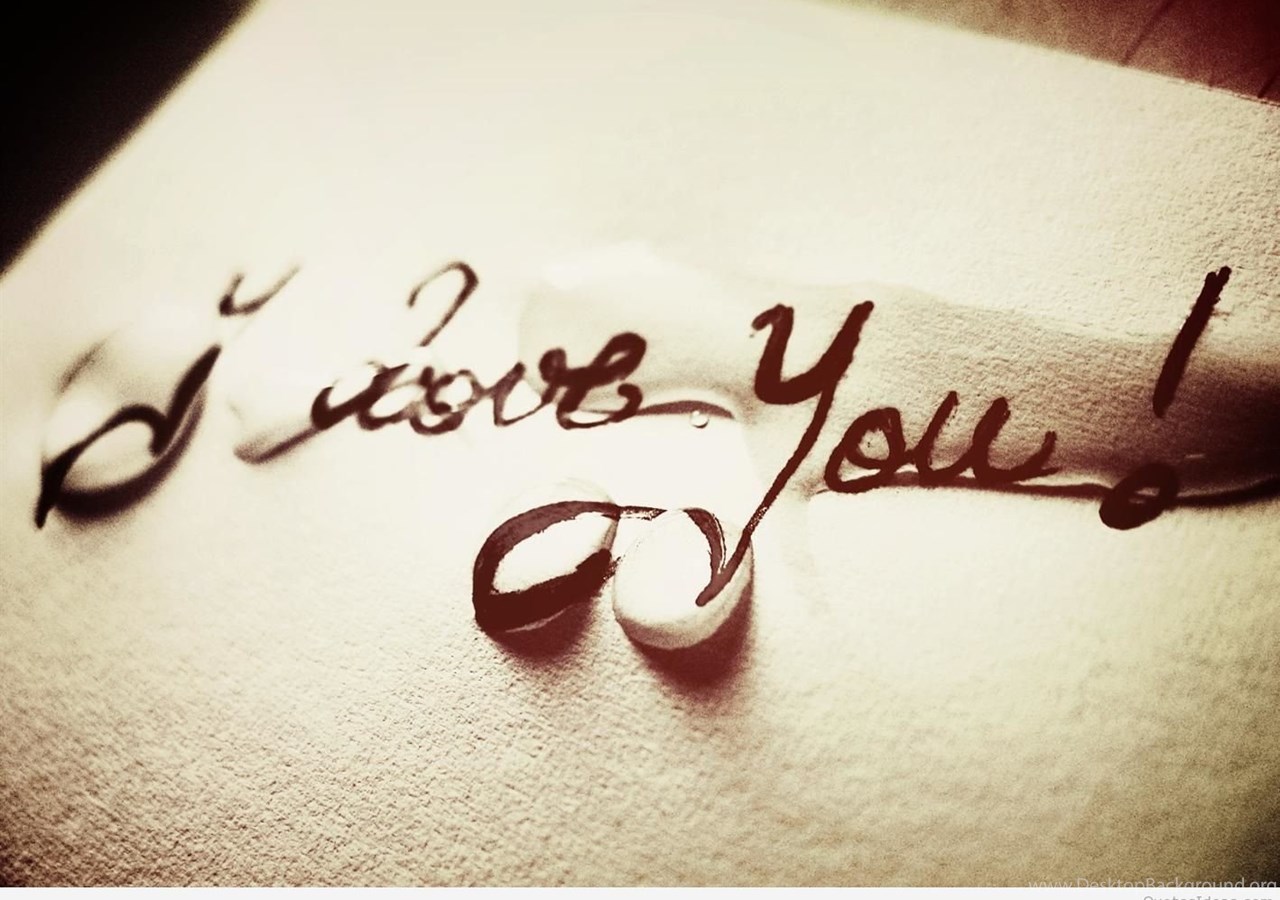 I love You!
www.DesktopBackground.org
QuotesIdeas.com